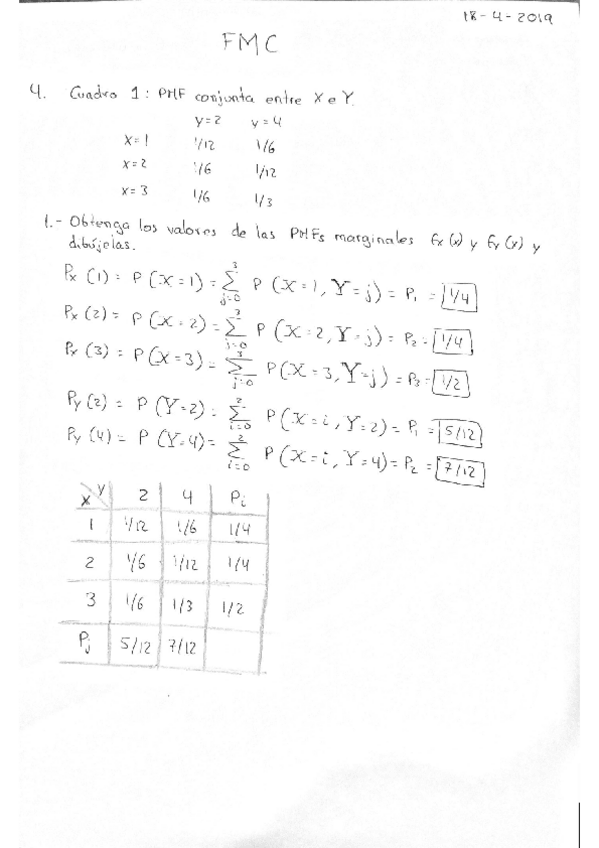 18-4-2019
FMC
4. Cuadro 1: PMF conjunta entre X e Y.
y=2 y=4
X=1 1/12 1/6
X=2 1/6 1/12
X=3 1/6 1/3
1.- Obtenga los valores de las PMFs marginales fx(x) y fy(x) y
dibújelas.
Px(1) = P(X=1) = ∑ j=0 3 P(X=1, Y=j) = P1 = 1/4
Px(2) = P(X=2) = ∑ j=0 3 P(X=2, Y=j) = P2 = 1/4
Px(3) = P(X=3) = ∑ j=0 3 P(X=3, Y=j) = P3 = 1/2
Py(2) = P(Y=2) = ∑ i=0 2 P(X=i, Y=2) = P1 = 5/12
Py(4) = P(Y=4) = ∑ i=0 2 P(X=i, Y=4) = P2 = 7/12
X Y 2 4 Pi
1 1/12 1/6 1/4
2 1/6 1/12 1/4
3 1/6 1/3 1/2
Pj 5/12 7/12